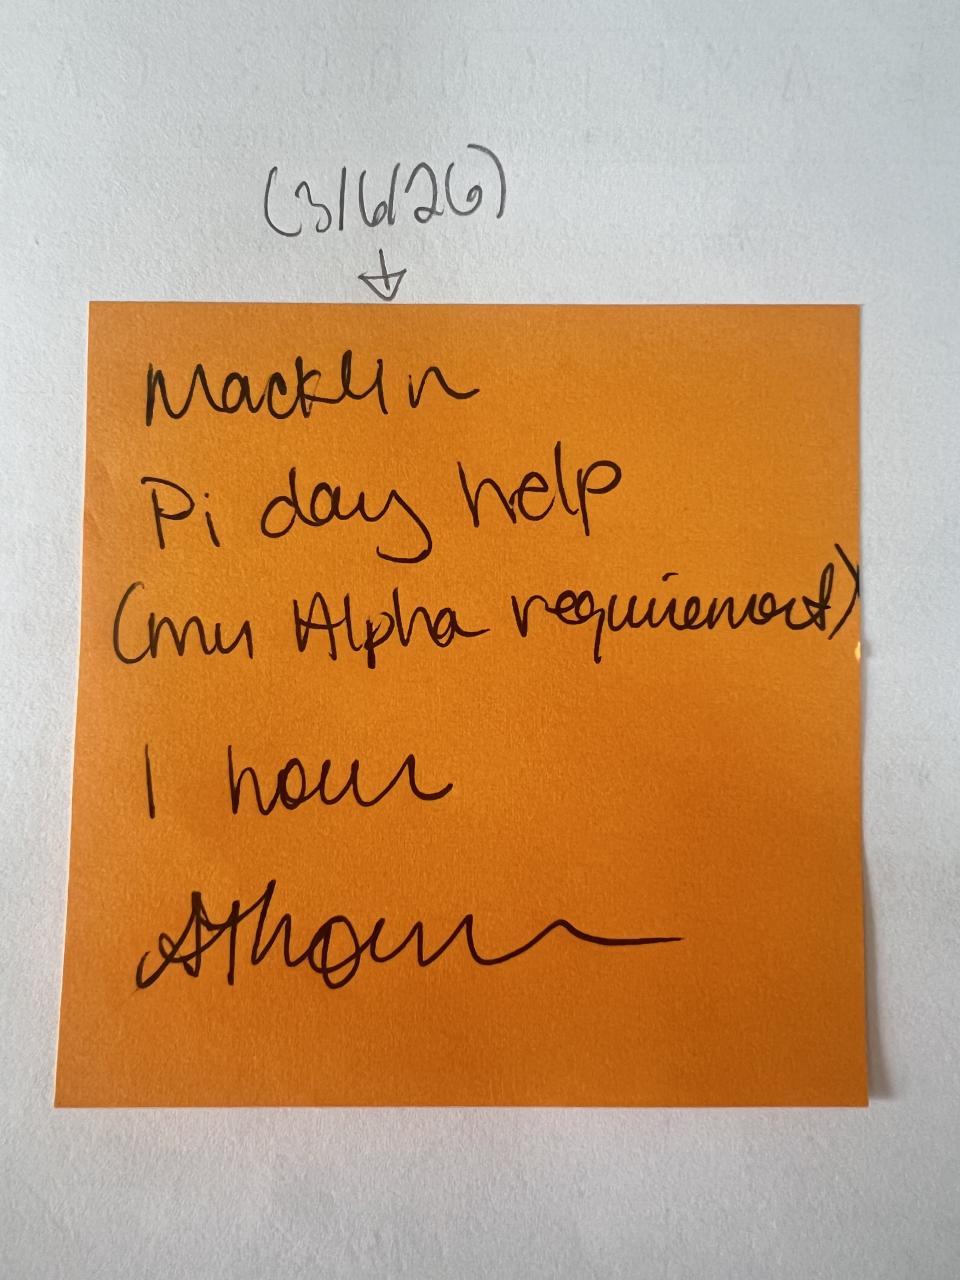 (3/6/26)
Macklin
Pi day help
(mu Alpha requirement)
1 hour